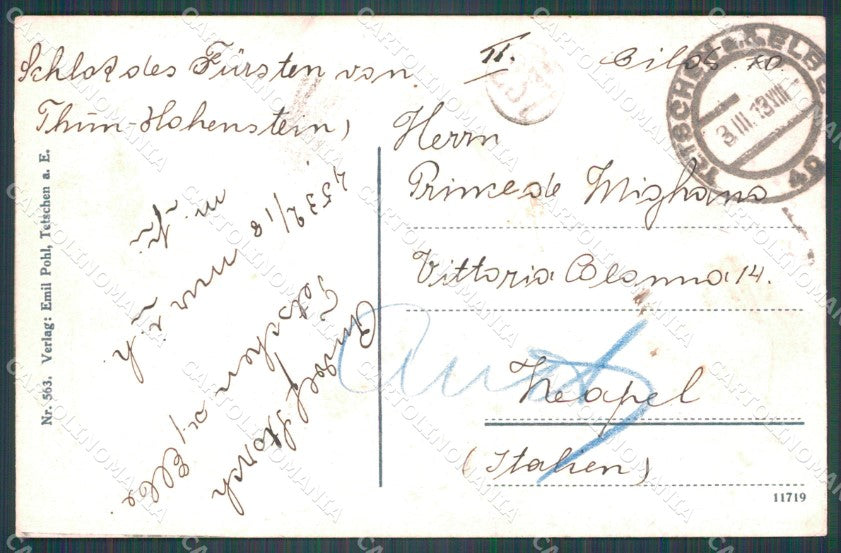 Schloß des Fürsten von
Thun-Hohenstein)
II.
TETSCHEN a. d. ELBE
3.III.13 VIII
4a
Herrn
Prince de Mighano
Vittoria Colonna 14.
Neapel
(Italien)
Rudolf Storch
Tetschen a/
Elbe
Nr. 563. Verlag: Emil Pohl, Tetschen a. E.
11719
CARTOLINOMANIA